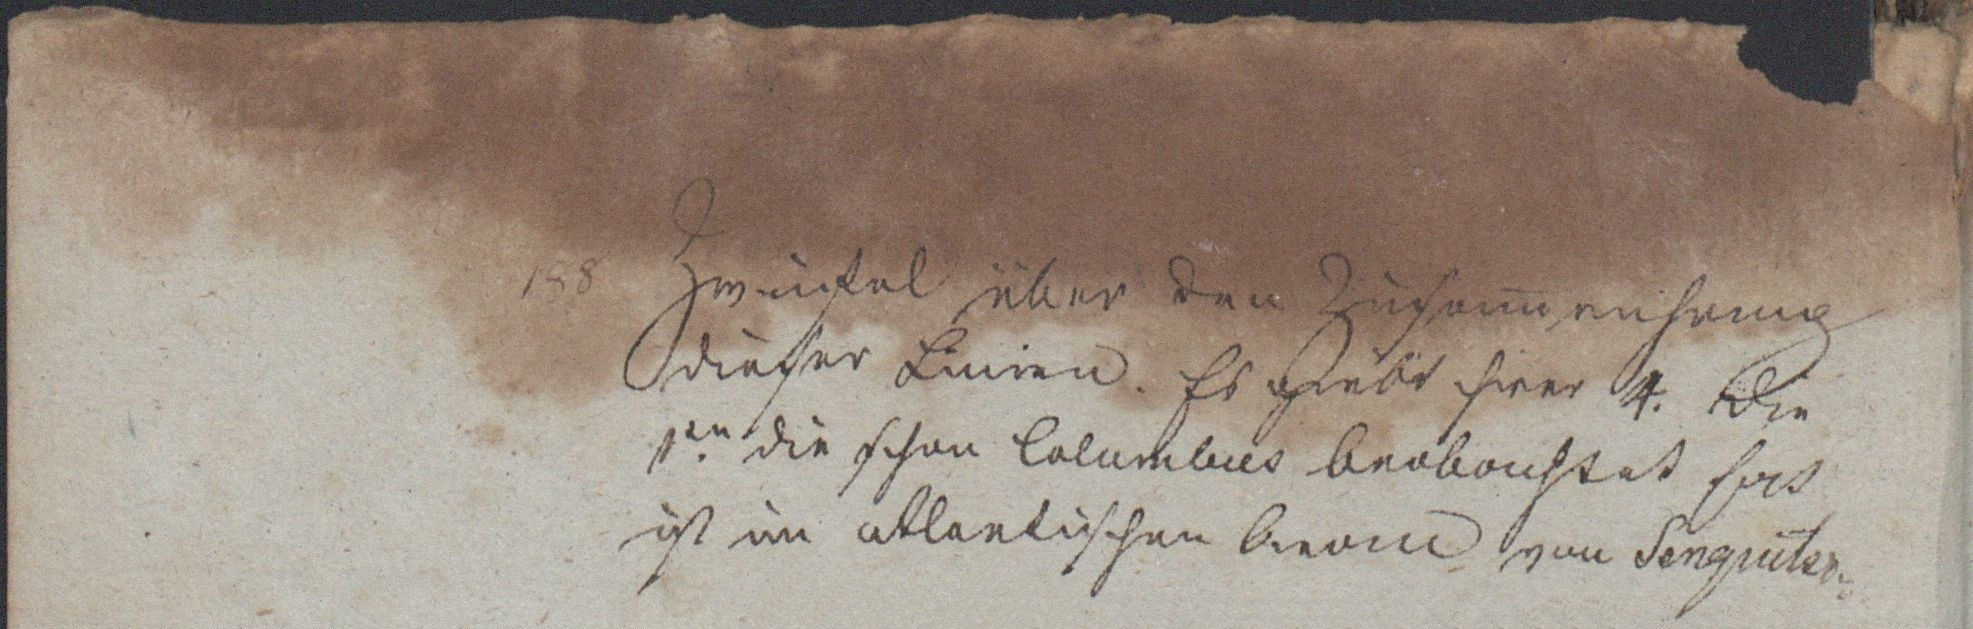 188 Zweifel über den Zusam̅enhang
dieser Linien. Es giebt hier 4. Die
1te. die schon Columbus beobachtet hat
ist im atlantischen Ocean von